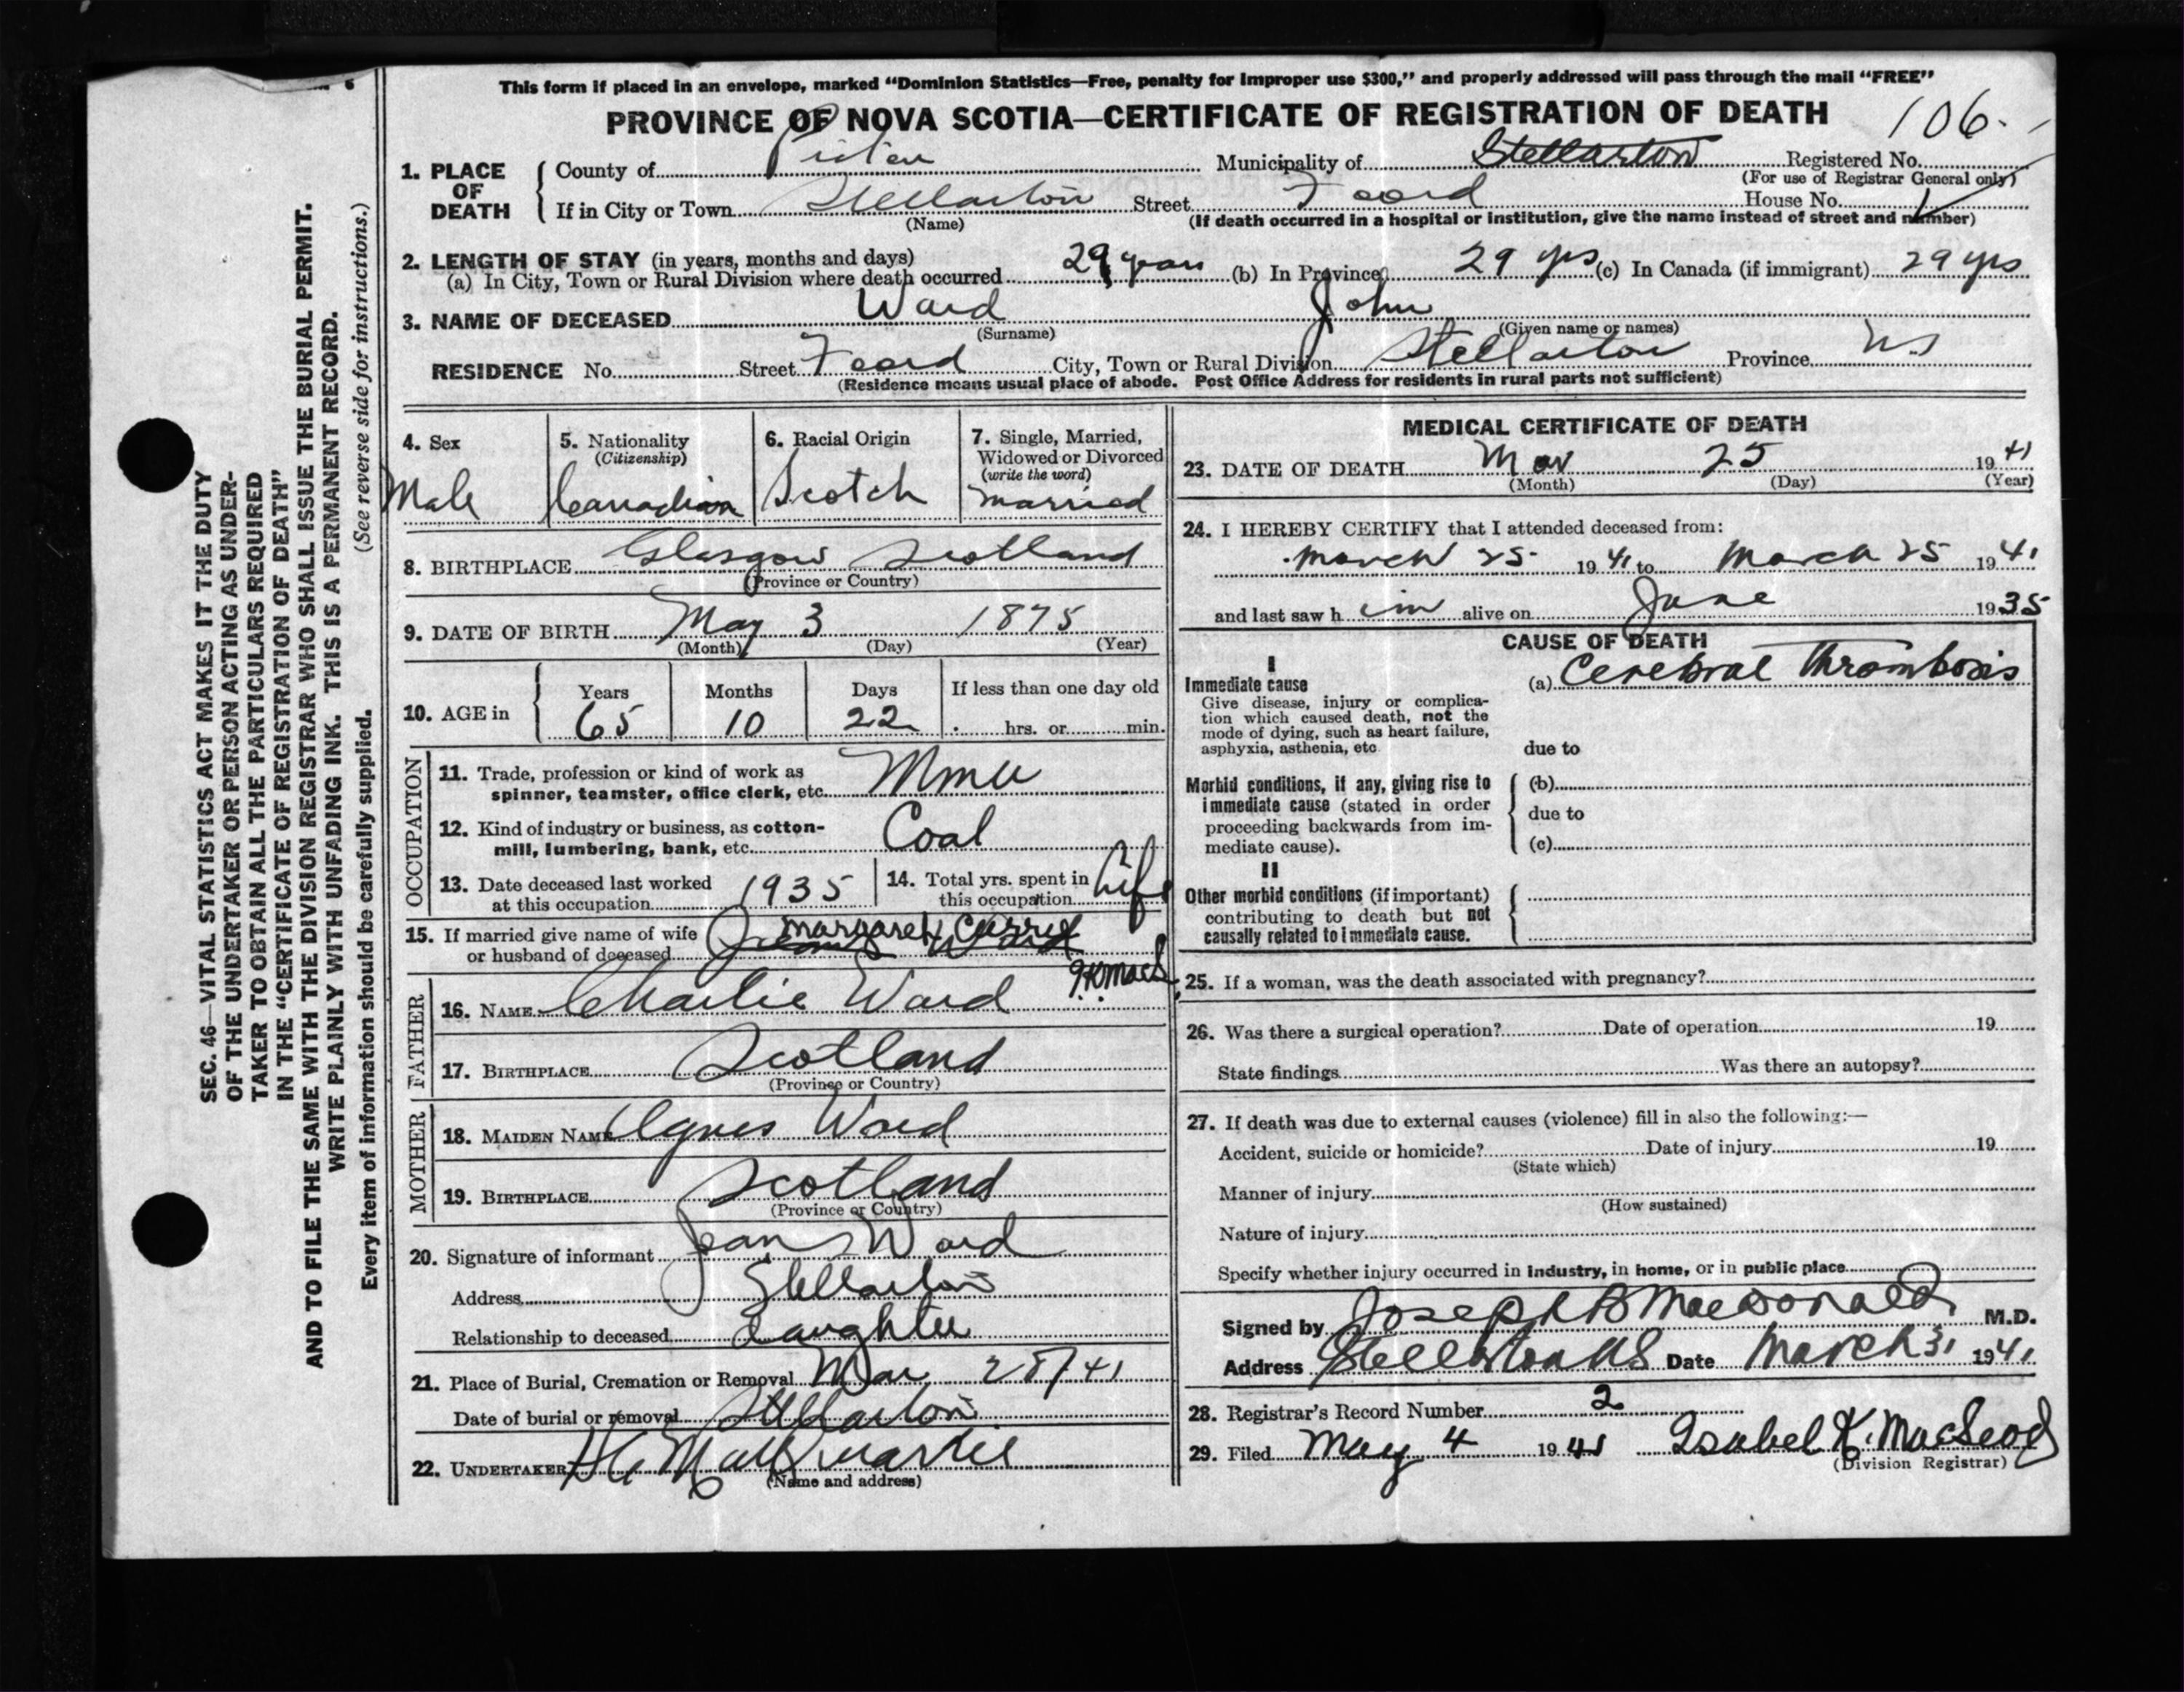 This form if placed in an envelope, marked “Dominion Statistics—Free, penalty for improper use $300,” and properly addressed will pass through the mail “FREE”
PROVINCE OF NOVA SCOTIA—CERTIFICATE OF REGISTRATION OF DEATH
106.
1. PLACE OF DEATH
County of Pictou Municipality of Stellarton Registered No.
(For use of Registrar General only)
If in City or Town Stellarton Street Foord House No.
(Name) (If death occurred in a hospital or institution, give the name instead of street and number)
2. LENGTH OF STAY (in years, months and days)
(a) In City, Town or Rural Division where death occurred 29 years (b) In Province 29 yrs (c) In Canada (if immigrant) 29 yrs
3. NAME OF DECEASED Ward John
(Surname) (Given name or names)
RESIDENCE No. Street Foord City, Town or Rural Division Stellarton Province N.S
(Residence means usual place of abode. Post Office Address for residents in rural parts not sufficient)
4. Sex
Male
5. Nationality
(Citizenship)
Canadian
6. Racial Origin
Scotch
7. Single, Married,
Widowed or Divorced
(write the word)
married
8. BIRTHPLACE Glasgow Scotland
(Province or Country)
9. DATE OF BIRTH May 3 1875
(Month) (Day) (Year)
10. AGE in
Years Months Days If less than one day old
65 10 22 hrs. or min.
OCCUPATION
11. Trade, profession or kind of work as
spinner, teamster, office clerk, etc. Miner
12. Kind of industry or business, as cotton-
mill, lumbering, bank, etc. Coal
13. Date deceased last worked
at this occupation 1935
14. Total yrs. spent in
this occupation Life
15. If married give name of wife
or husband of deceased Margaret Currie
I.K. MacL
FATHER
16. NAME Charlie Ward
17. BIRTHPLACE Scotland
(Province or Country)
MOTHER
18. MAIDEN NAME Agnes Ward
19. BIRTHPLACE Scotland
(Province or Country)
20. Signature of informant Jean Ward
Address Stellarton
Relationship to deceased daughter
21. Place of Burial, Cremation or Removal Mar 28/41
Date of burial or removal Stellarton
22. UNDERTAKER
(Name and address)
MEDICAL CERTIFICATE OF DEATH
23. DATE OF DEATH Mar 25 1941
(Month) (Day) (Year)
24. I HEREBY CERTIFY that I attended deceased from:
March 25 1941 to March 25 1941
and last saw him alive on June 1935
CAUSE OF DEATH
I
Immediate cause
Give disease, injury or complica-
tion which caused death, not the
mode of dying, such as heart failure,
asphyxia, asthenia, etc
(a) Cerebral Thrombosis
due to
Morbid conditions, if any, giving rise to
immediate cause (stated in order
proceeding backwards from im-
mediate cause).
(b)
due to
(c)
II
Other morbid conditions (if important)
contributing to death but not
causally related to immediate cause.
25. If a woman, was the death associated with pregnancy?
26. Was there a surgical operation? Date of operation 19
State findings Was there an autopsy?
27. If death was due to external causes (violence) fill in also the following:—
Accident, suicide or homicide? Date of injury 19
(State which)
Manner of injury
(How sustained)
Nature of injury
Specify whether injury occurred in industry, in home, or in public place
Signed by Joseph B MacDonald M.D.
Address Stellarton NS Date March 31 1941
28. Registrar's Record Number 2
29. Filed May 4 1941 Isabel K. MacLeod
(Division Registrar)
SEC. 46—VITAL STATISTICS ACT MAKES IT THE DUTY
OF THE UNDERTAKER OR PERSON ACTING AS UNDER-
TAKER TO OBTAIN ALL THE PARTICULARS REQUIRED
IN THE “CERTIFICATE OF REGISTRATION OF DEATH”
AND TO FILE THE SAME WITH THE DIVISION REGISTRAR WHO SHALL ISSUE THE BURIAL PERMIT.
WRITE PLAINLY WITH UNFADING INK. THIS IS A PERMANENT RECORD.
Every item of information should be carefully supplied. (See reverse side for instructions.)